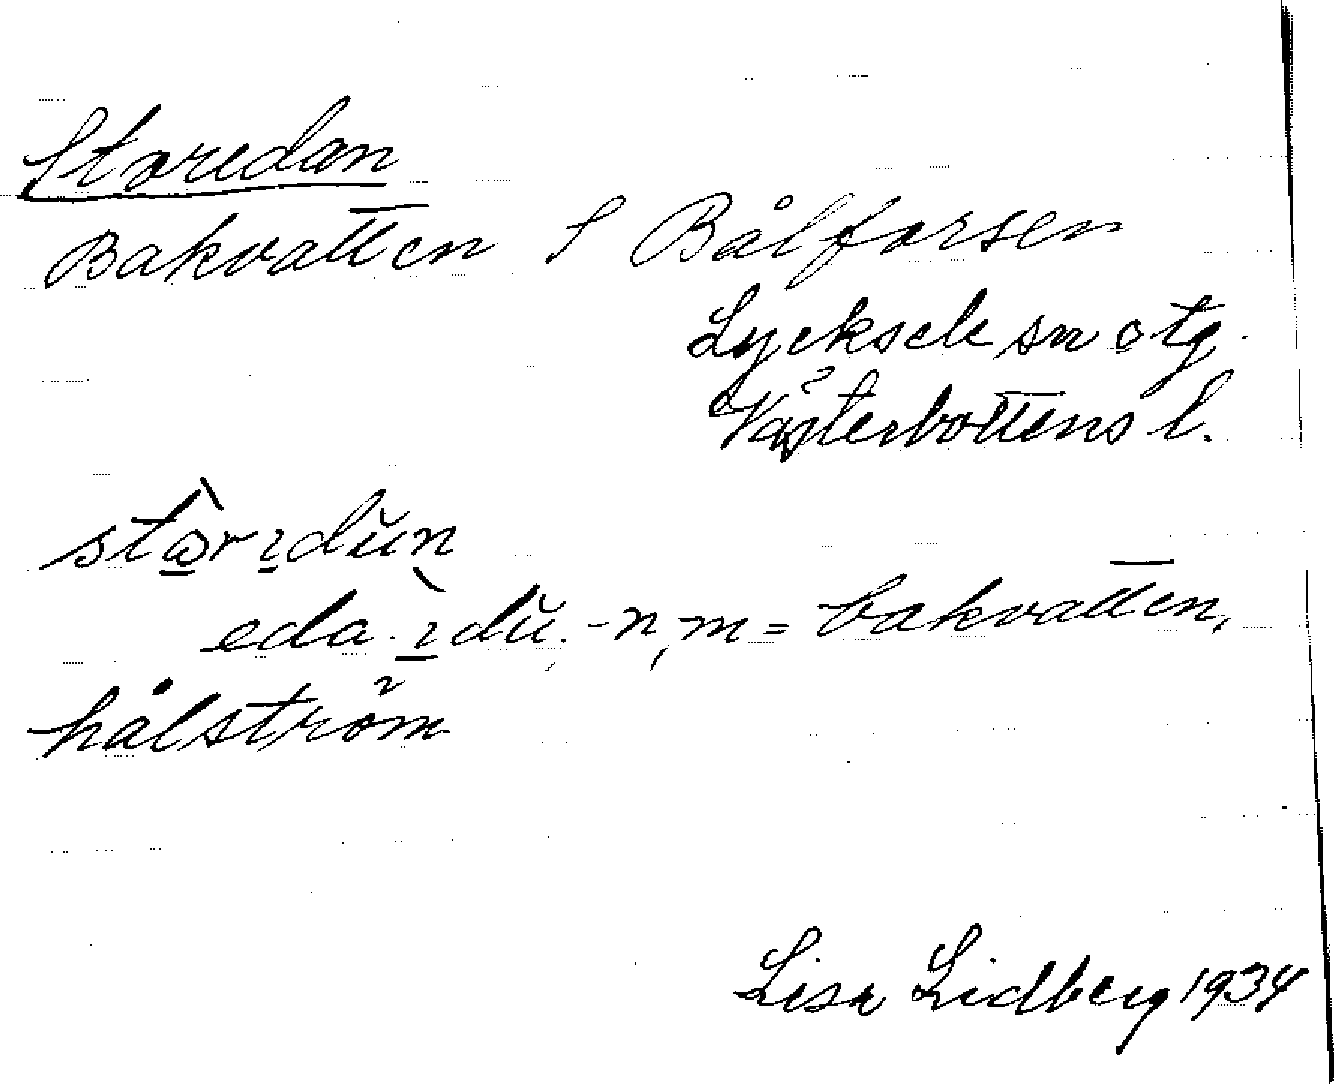 Storedan
Bakvatten S Bålforsen
Lycksele sn o tg.
Västerbottens l.
stòrıdŭn
eda ìdŭ, -n, m = bakvatten,
hålström
Lisa Lidberg 1934